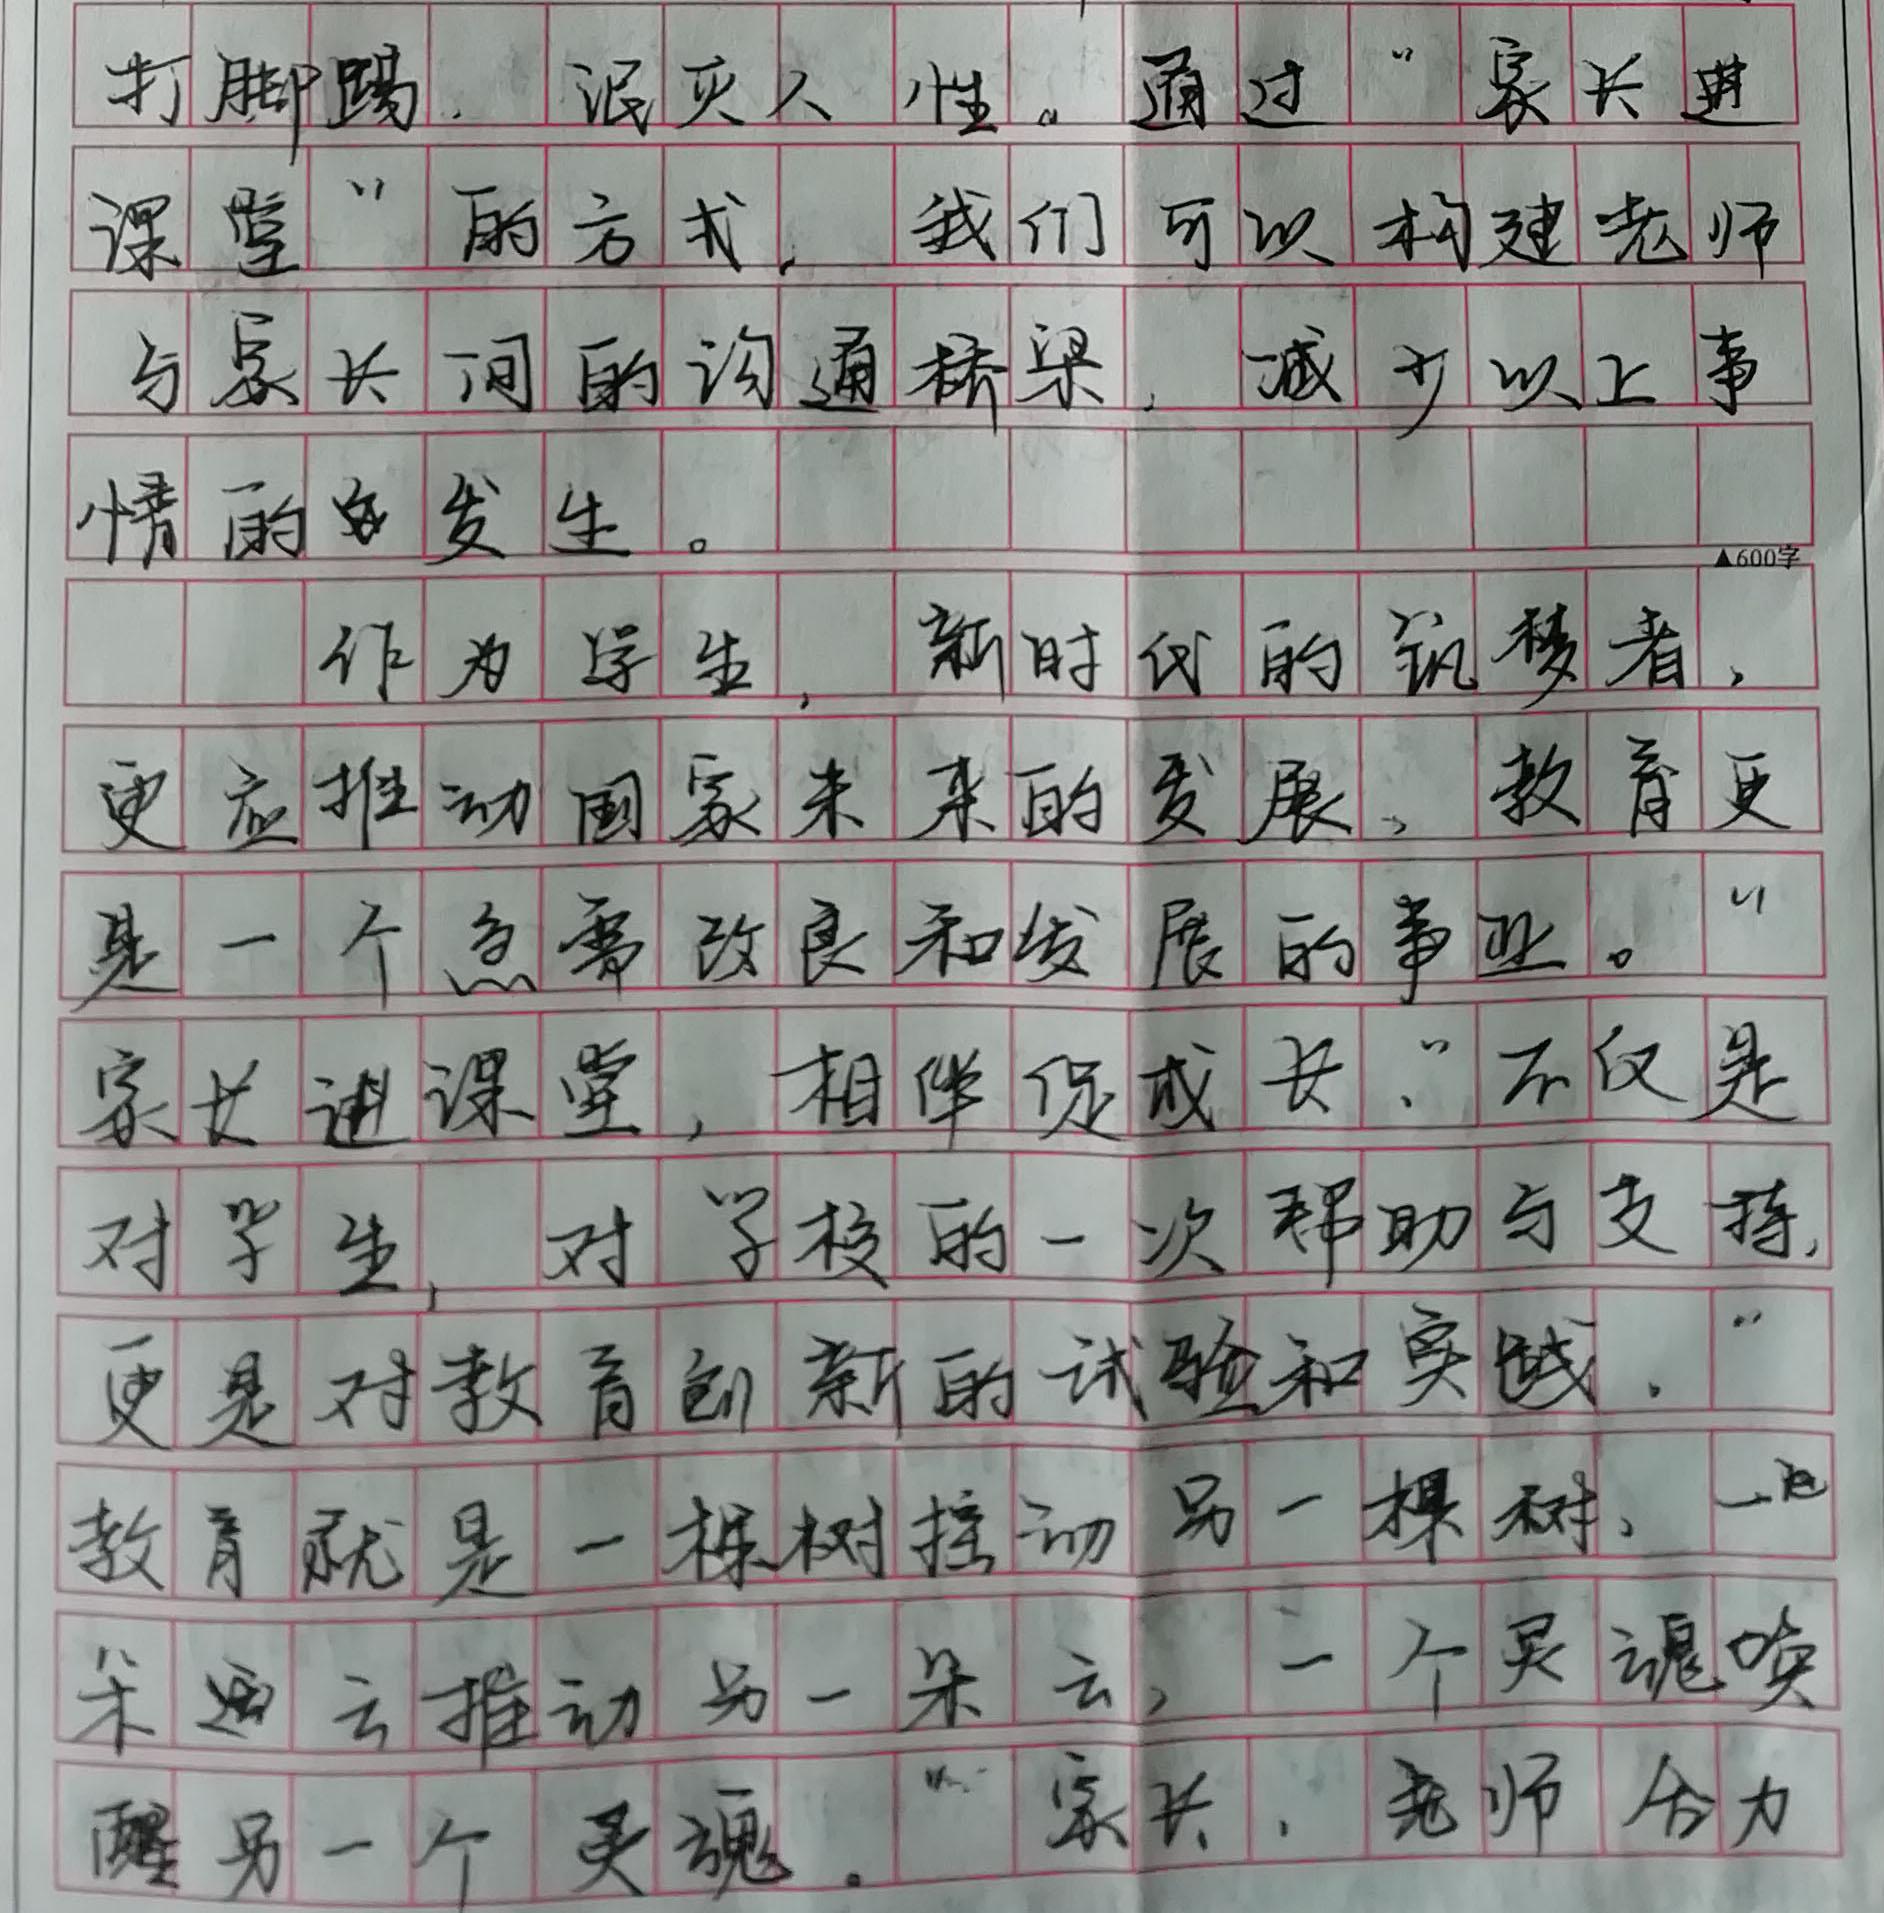 打脚踢，泯灭人性。通过“家长进
课堂”的方式，我们可以构建老师
与家长间的沟通桥梁，减少以上事
情的发生。
▲600字
作为学生，新时代的筑梦者，
更应推动国家未来的发展，教育更
是一个急需改良和发展的事业。“
家长进课堂，相伴促成长，”不仅是
对学生，对学校的一次帮助与支持，
更是对教育创新的试验和实践。“
教育就是一棵树摇动另一棵树，一
朵云推动另一朵云，一个灵魂唤
醒另一个灵魂。”家长、老师合力